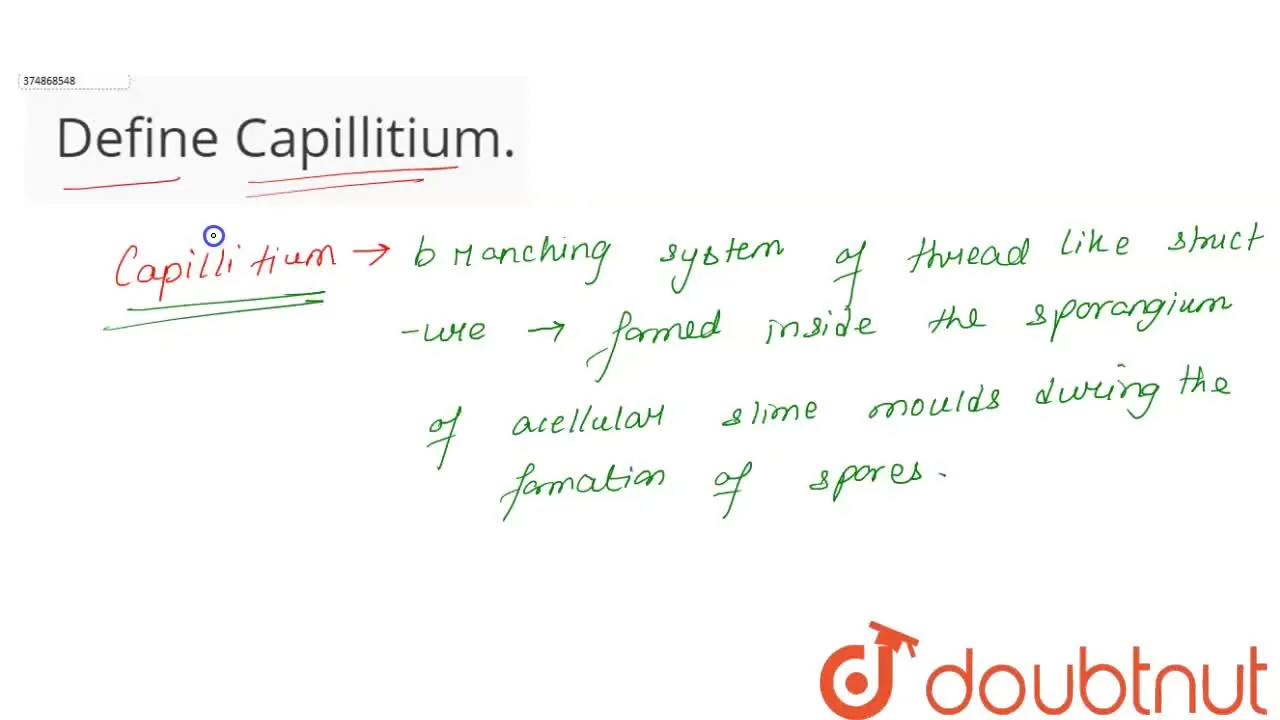 374868548
Define Capillitium.
Capillitium → branching system of thread like struct
-ure → formed inside the sporangium
of acellular slime moulds during the
formation of spores.
doubtnut